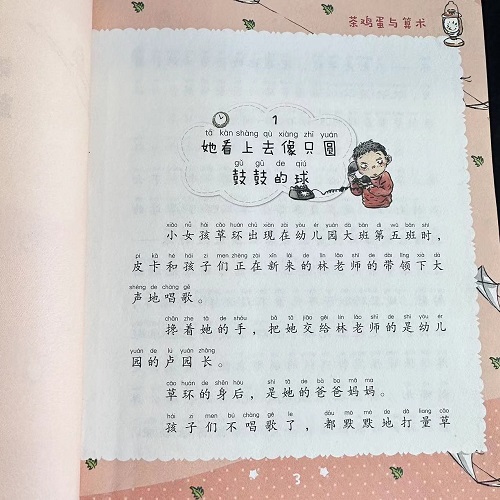 茶鸡蛋与算术
1
tā kàn shàng qù xiàng zhī yuán
她看上去像只圆
gū gū de qiú
鼓鼓的球
xiǎo nǚ hái cǎo huán chū xiàn zài yòu ér yuán dà bān dì wǔ bān shí
小女孩草环出现在幼儿园大班第五班时，
pí kǎ hé hái zi men zhèng zài xīn lái de lín lǎo shī de dài lǐng xià dà
皮卡和孩子们正在新来的林老师的带领下大
shēng de chàng gē
声地唱歌。
chān zhe tā de shǒu bǎ tā jiāo gěi lín lǎo shī de shì yòu ér
搀着她的手，把她交给林老师的是幼儿
yuán de lú yuán zhǎng
园的卢园长。
cǎo huán de shēn hòu shì tā de bà ba mā ma
草环的身后，是她的爸爸妈妈。
hái zi men bú chàng gē le dōu mò mò de dǎ liang cǎo
孩子们不唱歌了，都默默地打量草
3